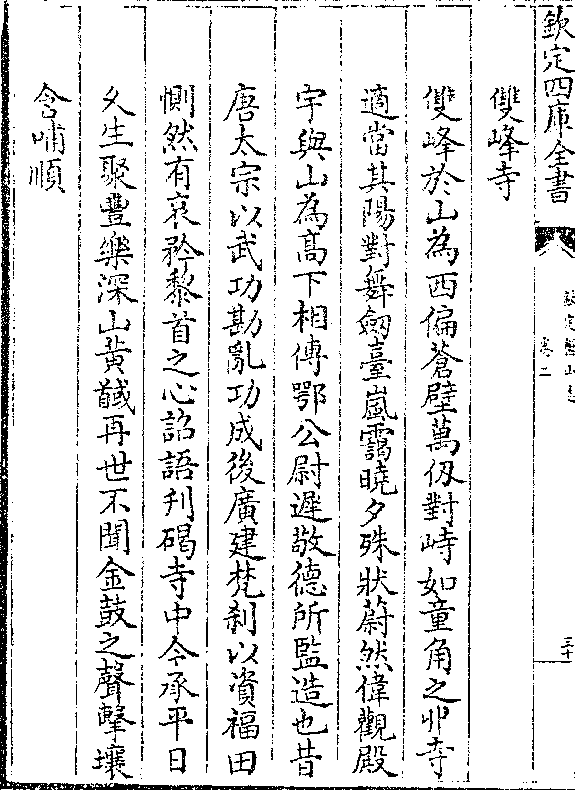 欽定四庫全書
欽定盤山志
卷二
三十
雙峰寺
雙峰於山為西偏蒼壁萬仭對峙如童角之丱寺
適當其陽對舞劒臺嵐靄曉夕殊狀蔚然偉觀殿
宇與山為髙下相傳鄂公尉遲敬德所監造也昔
唐太宗以武功勘亂功成後廣建梵刹以資福田
惻然有哀矜黎首之心詔語刋碣寺中今承平日
乆生聚豐樂深山黄馘再世不聞金鼓之聲擊壤
含哺順